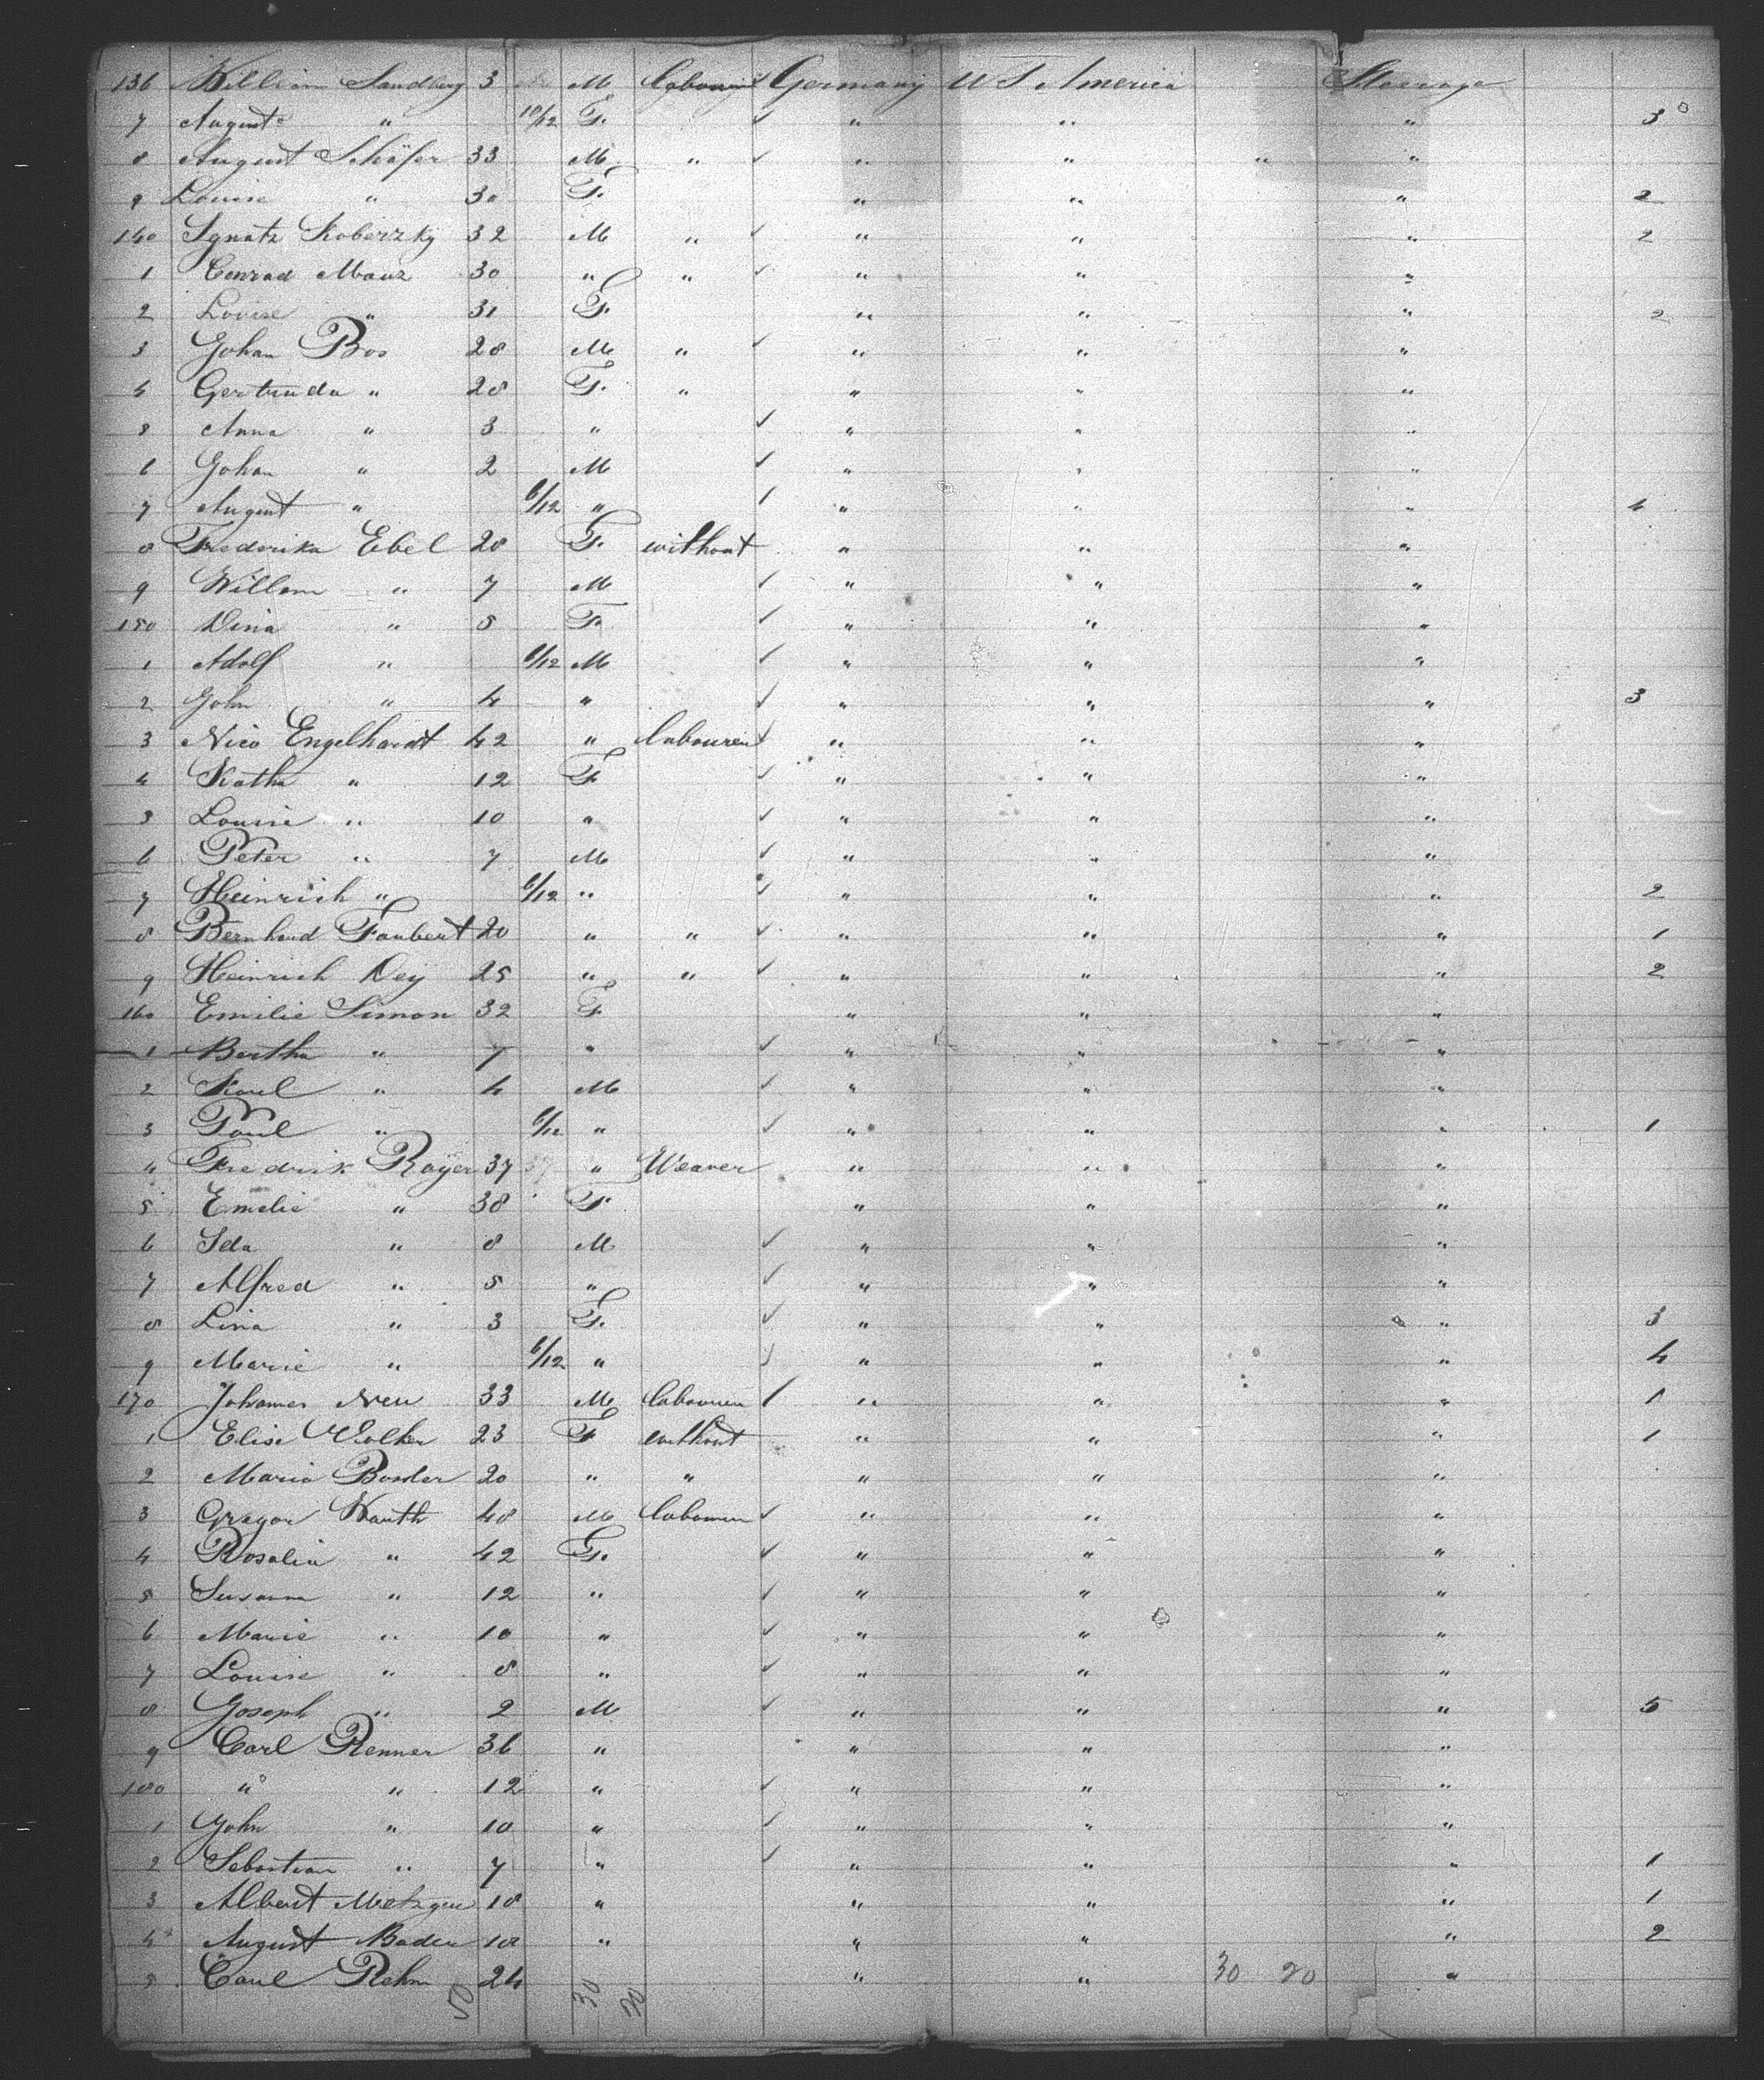 136 William Sandberg 3 M Labourer Germany U S America Steerage
7 Auguste " 10/12 F. " " " 3
8 August Schäfer 33 M. " " " " "
9 Louise " 30 F. " " " 2
140 Ignatz Koberzky 32 M " " " " 2
1 Conrad Mauz 30 " " " " "
2 Louise " 31 F. " " " 2
3 Johan Bos 28 M " " " "
4 Gertruda " 28 F. " " " "
5 Anna " 3 " " " "
6 Johan " 2 M " " "
7 August " 6/12 " " " " 4
8 Frederika Ebel 28 F. without " " "
9 Willem " 7 M " " "
150 Dina " 5 F. " " "
1 Adolf " 6/12 M " " "
2 John " 4 " " " " 3
3 Nico Engelhardt 42 " labourer " " "
4 Katha " 12 F " " "
5 Louise " 10 " " " "
6 Peter " 7 M " " "
7 Heinrich " 6/12 " " " " 2
8 Bernhard Faubert 20 " " " " " 1
9 Heinrich Dey 25 " " " " " 2
160 Emilie Simon 32 F " " "
1 Bertha " 7 " " " "
2 Karl " 4 M " " "
3 Paul " 6/12 " " " " 1
4 Fredrik Rayer 37 37 " Weaver " " "
5 Emelie " 38 F. " " "
6 Ida " 8 M " " "
7 Alfred " 5 " " " "
8 Lina " 3 F. " " " 3
9 Marie " 6/12 " " " " 4
170 Johannes Neu 33 M labourer " " " 1
1 Elise Volker 23 F without " " " 1
2 Maria 20 " " " " "
3 Gregor Warth 48 M labourer " " "
4 Rosalia " 42 F. " " "
5 Susanna " 12 " " " "
6 Marie " 10 " " " "
7 Louise " 8 " " " "
8 Joseph " 2 M " " " 5
9 Carl Renner 36 " " " "
180 " " 12 " " " "
1 John " 10 " " " "
2 Sebastian " 7 " " " " 1
3 Albert Metzger 18 " " " " 1
4 August Bader 18 " " " " 2
5 Carl Rehm 24 " " 30 20 "
50 30 20